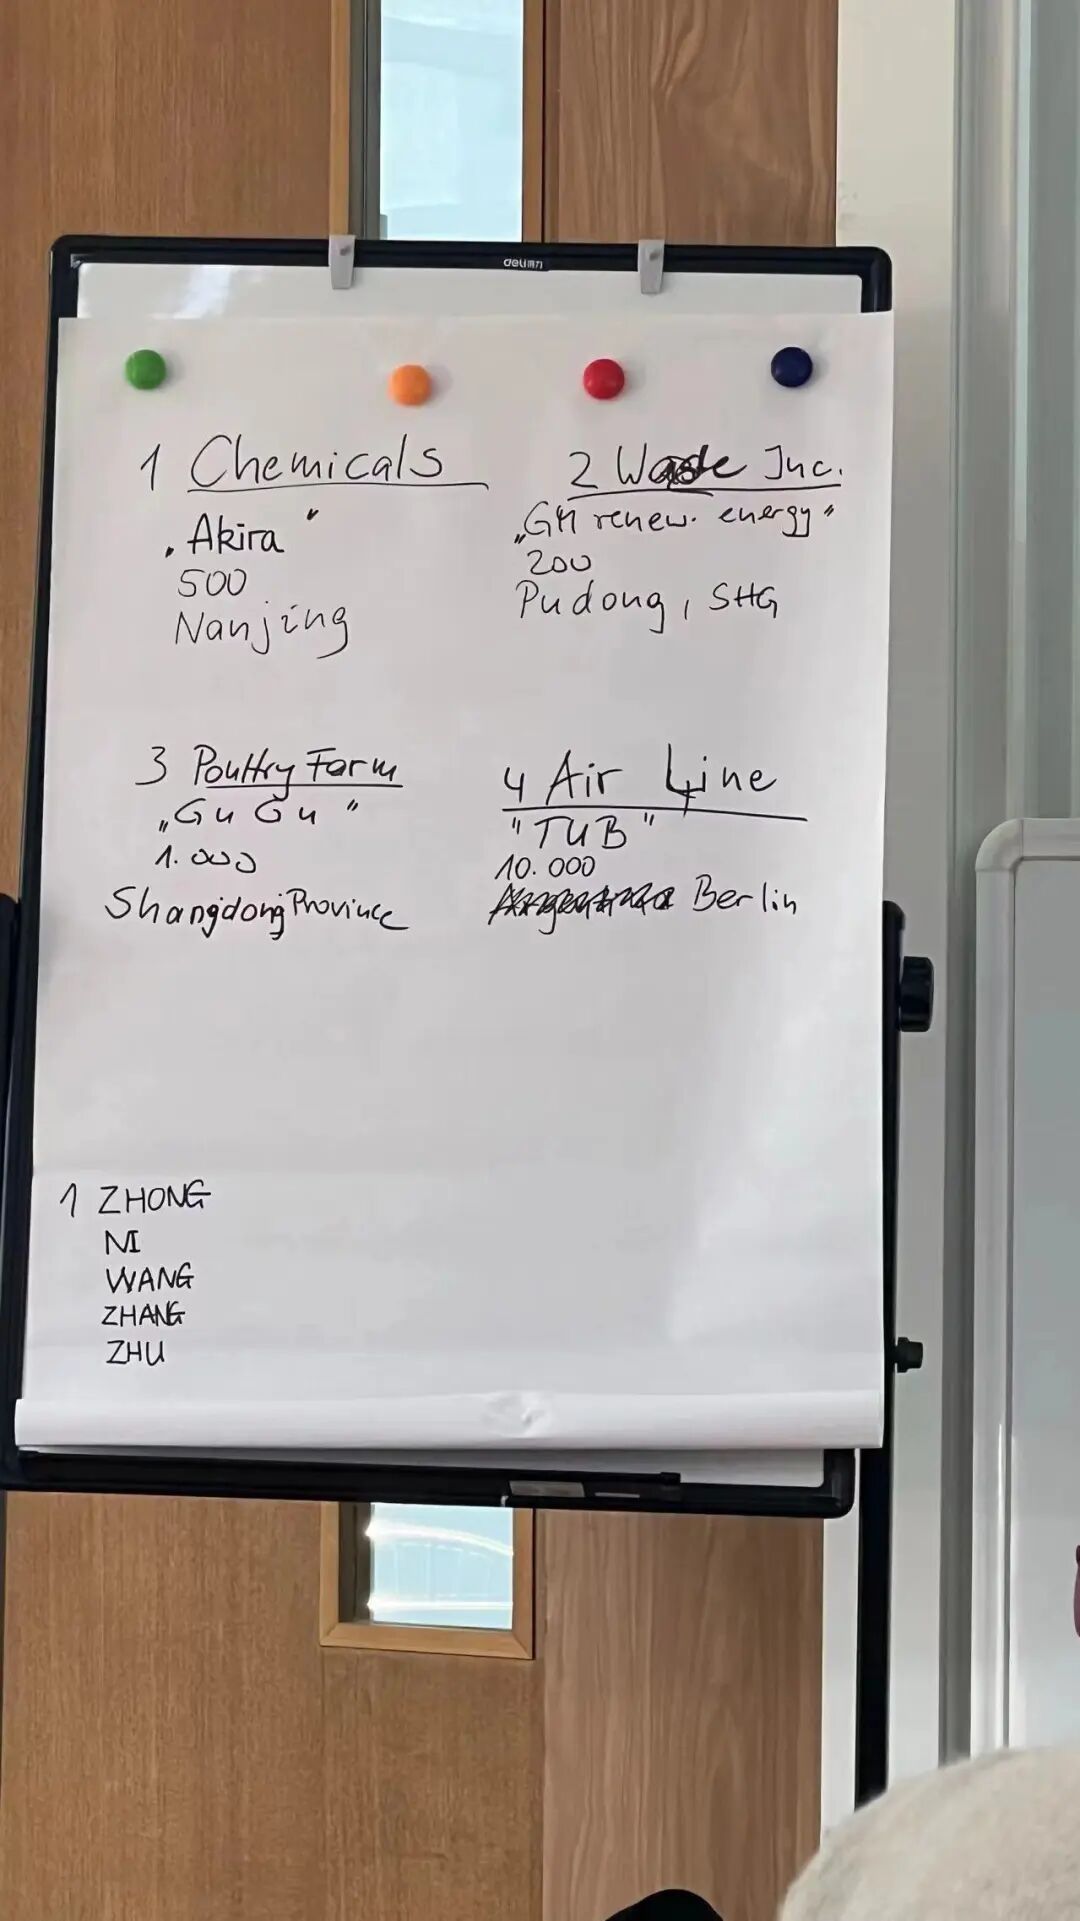 deli得力
1 Chemicals
„Akira"
500
Nanjing
2 Waste Inc.
„GM renew. energy"
200
Pudong, SHG
3 Poultry Farm
„Gu Gu"
1.000
Shangdong Province
4 Air Line
"TUB"
10.000
Berlin
1 ZHONG
NI
WANG
ZHANG
ZHU